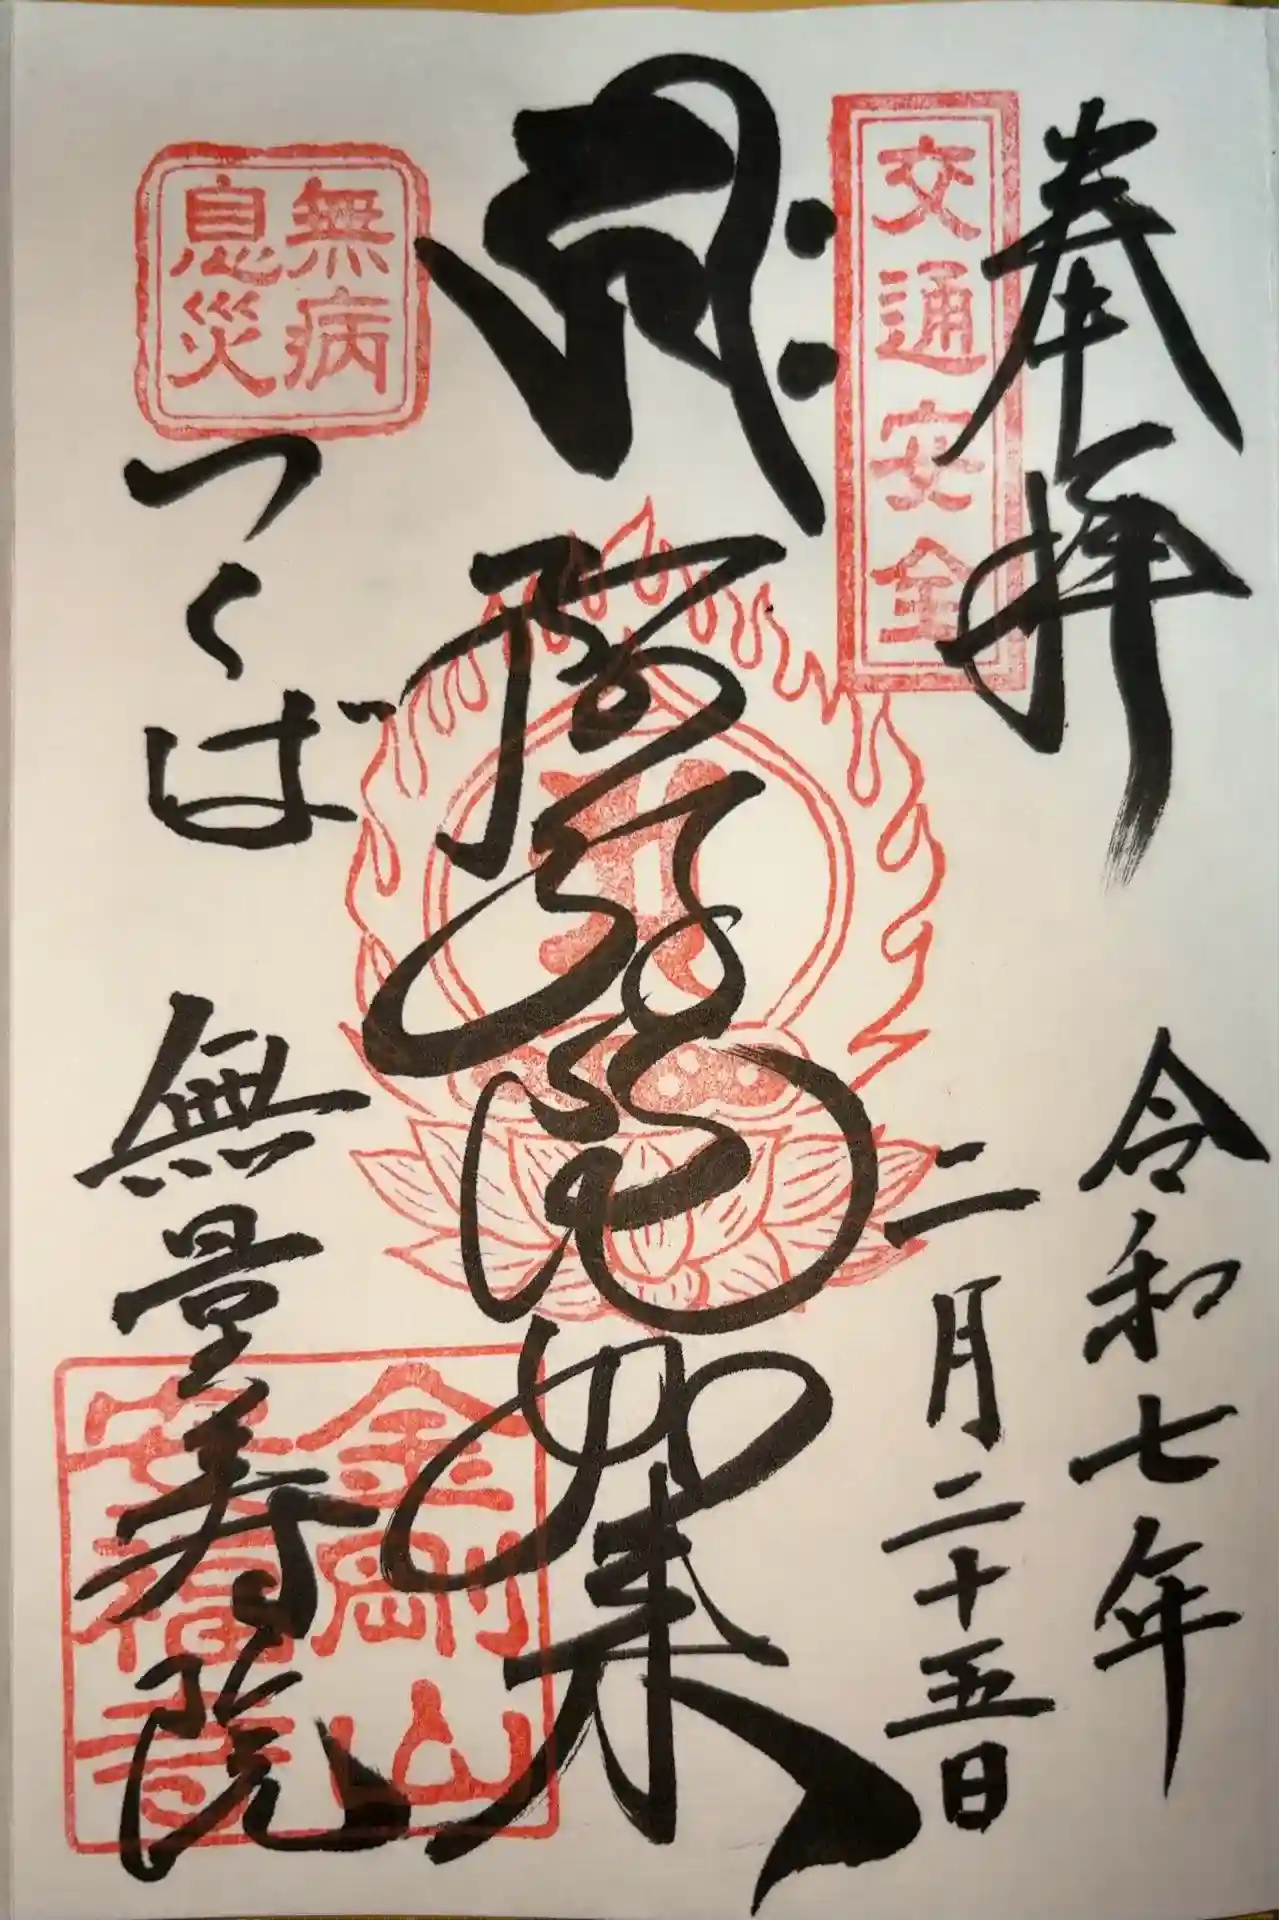 奉拝
交通安全
令和七年
二月二十五日
𑖮𑖿𑖨𑖱𑖾
阿弥陀如来
無病
息災
つくば
無量寿院
金剛山
安福寺